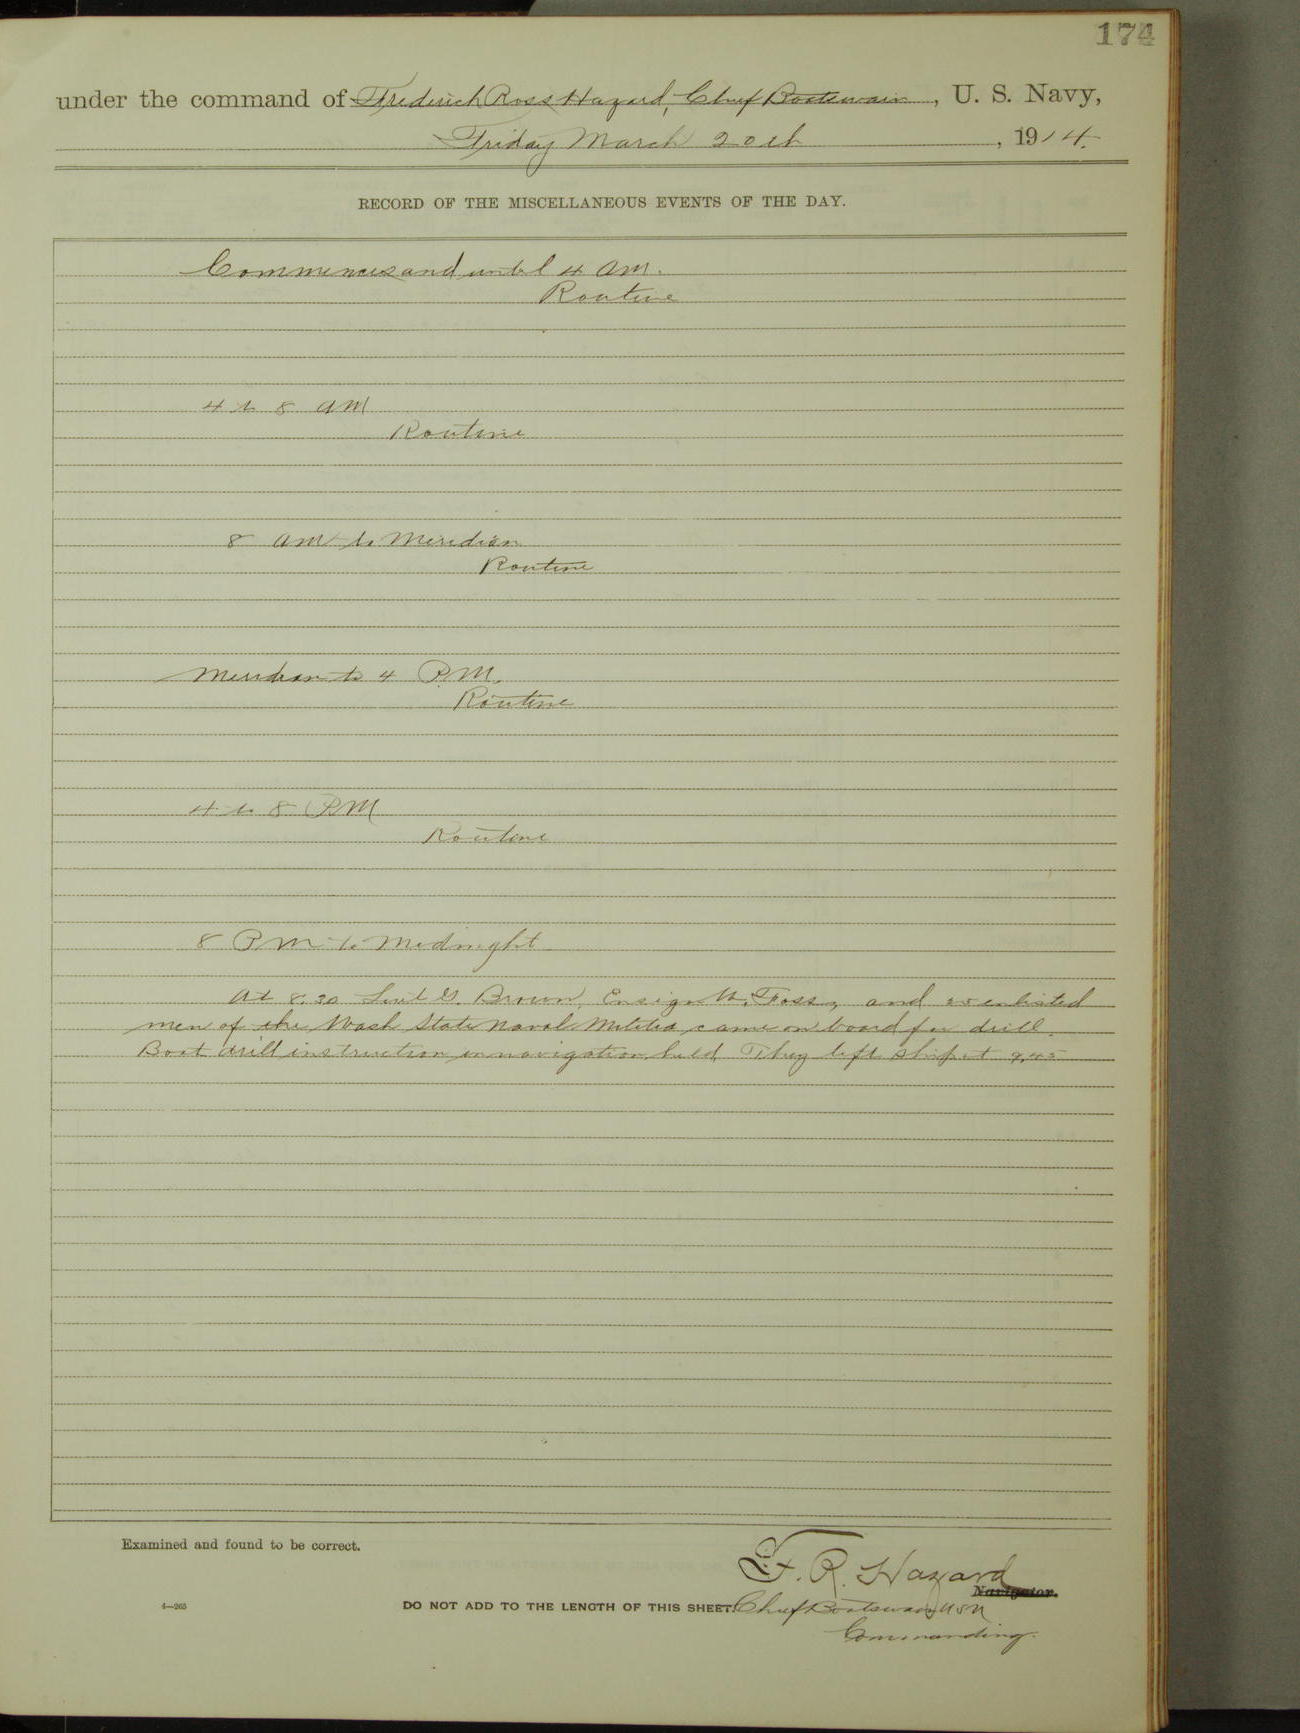 174
under the command of Frederick Ross Hazard, Chief Boatswain, U. S. Navy,
Friday March 20th, 1914.
RECORD OF THE MISCELLANEOUS EVENTS OF THE DAY.
Commences and until 4 am.
Routine
4 to 8 am
Routine
8 am to Meridian
Routine
Meridian to 4 P.M.
Routine
4 to 8 PM
Routine
8 Pm to Midnight
At 8.30 Lieut G. Brown, Ensign W. Foss, and 25 enlisted
men of the Wash State Naval Militia came on board for drill.
Boat drill instruction in navigation held. They left ship at 9,45
Examined and found to be correct.
F. R. Hazard
Navigator.
4—265
DO NOT ADD TO THE LENGTH OF THIS SHEET. Chief Boatswain USN
Commanding.